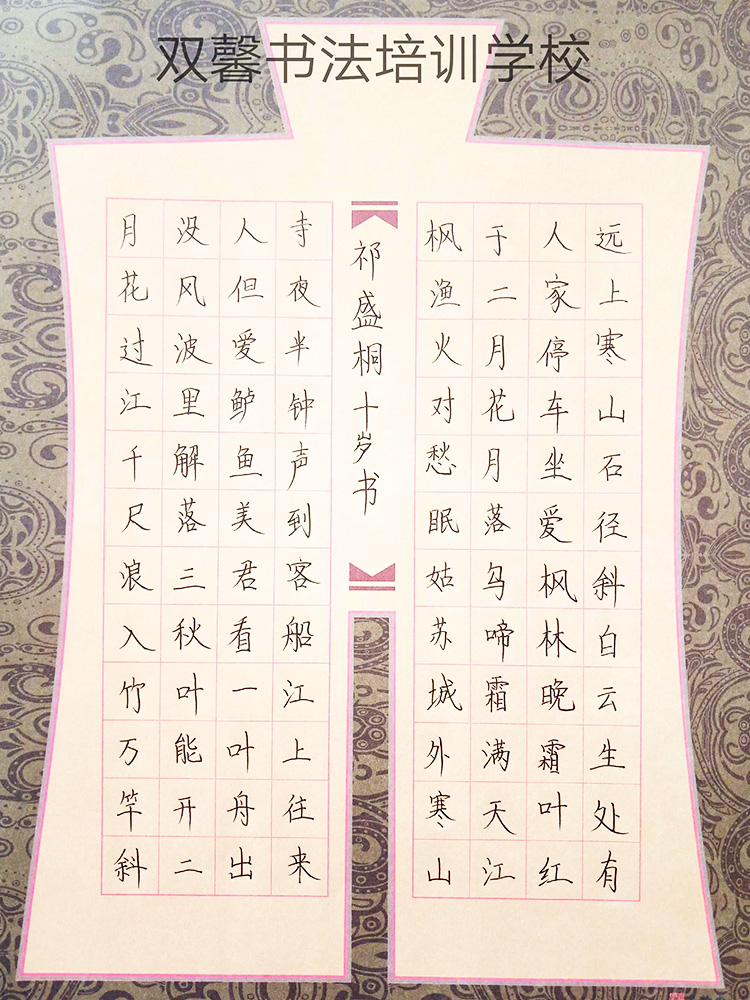 双馨书法培训学校
远上寒山石径斜白云生处有
人家停车坐爱枫林晚霜叶红
于二月花月落乌啼霜满天江
枫渔火对愁眠姑苏城外寒山
寺夜半钟声到客船江上往来
人但爱鲈鱼美君看一叶舟出
没风波里解落三秋叶能开二
月花过江千尺浪入竹万竿斜
祁盛桐十岁书